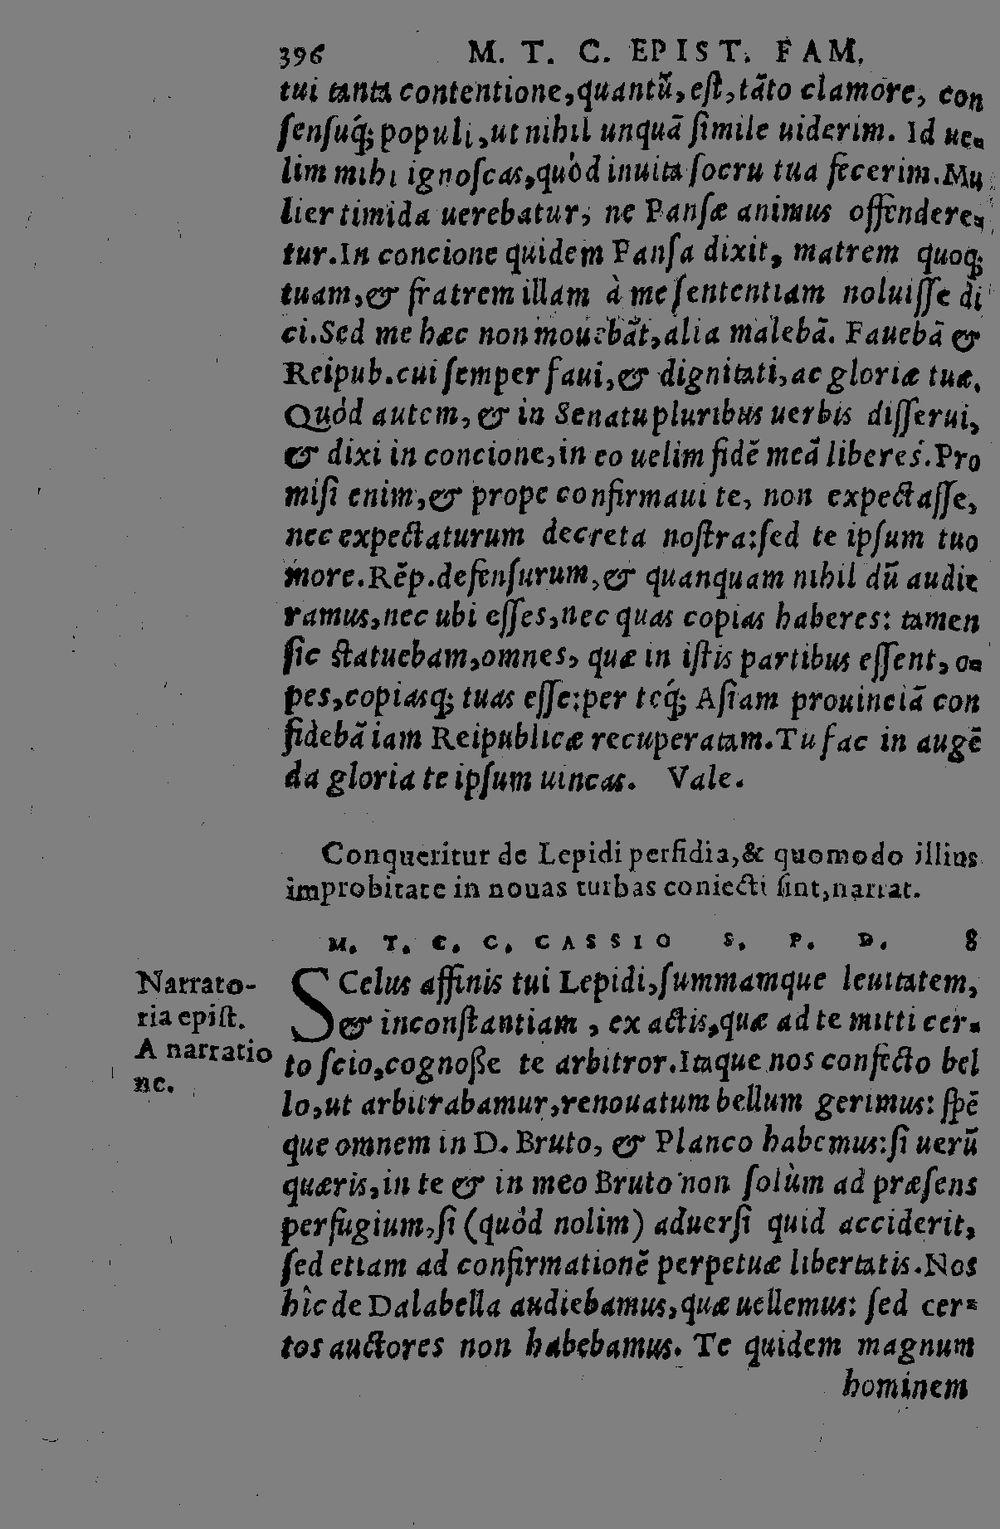 396 M. T. C. EPIST. FAM.
tui tanta contentione,quantū,est,tāto clamore, con
sensuq́; populi,ut nihil unquā simile uiderim. Id ue-
lim mihi ignoscas,quòd inuita socru tua fecerim.Mu
lier timida uerebatur, ne Pansæ animus offendere-
tur.In concione quidem Pansa dixit, matrem quoq;
tuam,& fratrem illam à me sententiam noluisse di
ci.Sed me hæc non mouebāt,alia malebā. Fauebā &
Reipub.cui semper faui,& dignitati,ac gloriæ tuæ.
Quòd autem, & in Senatu pluribus uerbis disserui,
& dixi in concione,in eo uelim fidē meā liberes.Pro
misi enim,& prope confirmaui te, non expectasse,
nec expectaturum decreta nostra:sed te ipsum tuo
more.Rēp.defensurum,& quanquam nihil dū audie
ramus,nec ubi esses,nec quas copias haberes: tamen
sic statuebam,omnes, quæ in istis partibus essent, o-
pes,copiasq; tuas esse:per teq́; Asiam prouinciā con
fidebā iam Reipublicæ recuperatam.Tu fac in augē
da gloria te ipsum uincas. Vale.
Conqueritur de Lepidi perfidia,& quomodo illius
improbitate in nouas turbas coniecti sint,narrat.
M. T. C. C. CASSIO S. P. D. 8
Narrato-
ria epist.
A narratio
ne.
SCelus affinis tui Lepidi,summamque leuitatem,
& inconstantiam , ex actis,quæ ad te mitti cer-
to scio,cognosse te arbitror.Itaque nos confecto bel
lo,ut arbitrabamur,renouatum bellum gerimus: spē
que omnem in D. Bruto, & Planco habemus:si uerū
quæris,in te & in meo Bruto non solùm ad præsens
perfugium,si (quòd nolim) aduersi quid acciderit,
sed etiam ad confirmationē perpetuæ libertatis.Nos
hîc de Dalabella audiebamus,quæ uellemus: sed cer-
tos auctores non habebamus. Te quidem magnum
hominem